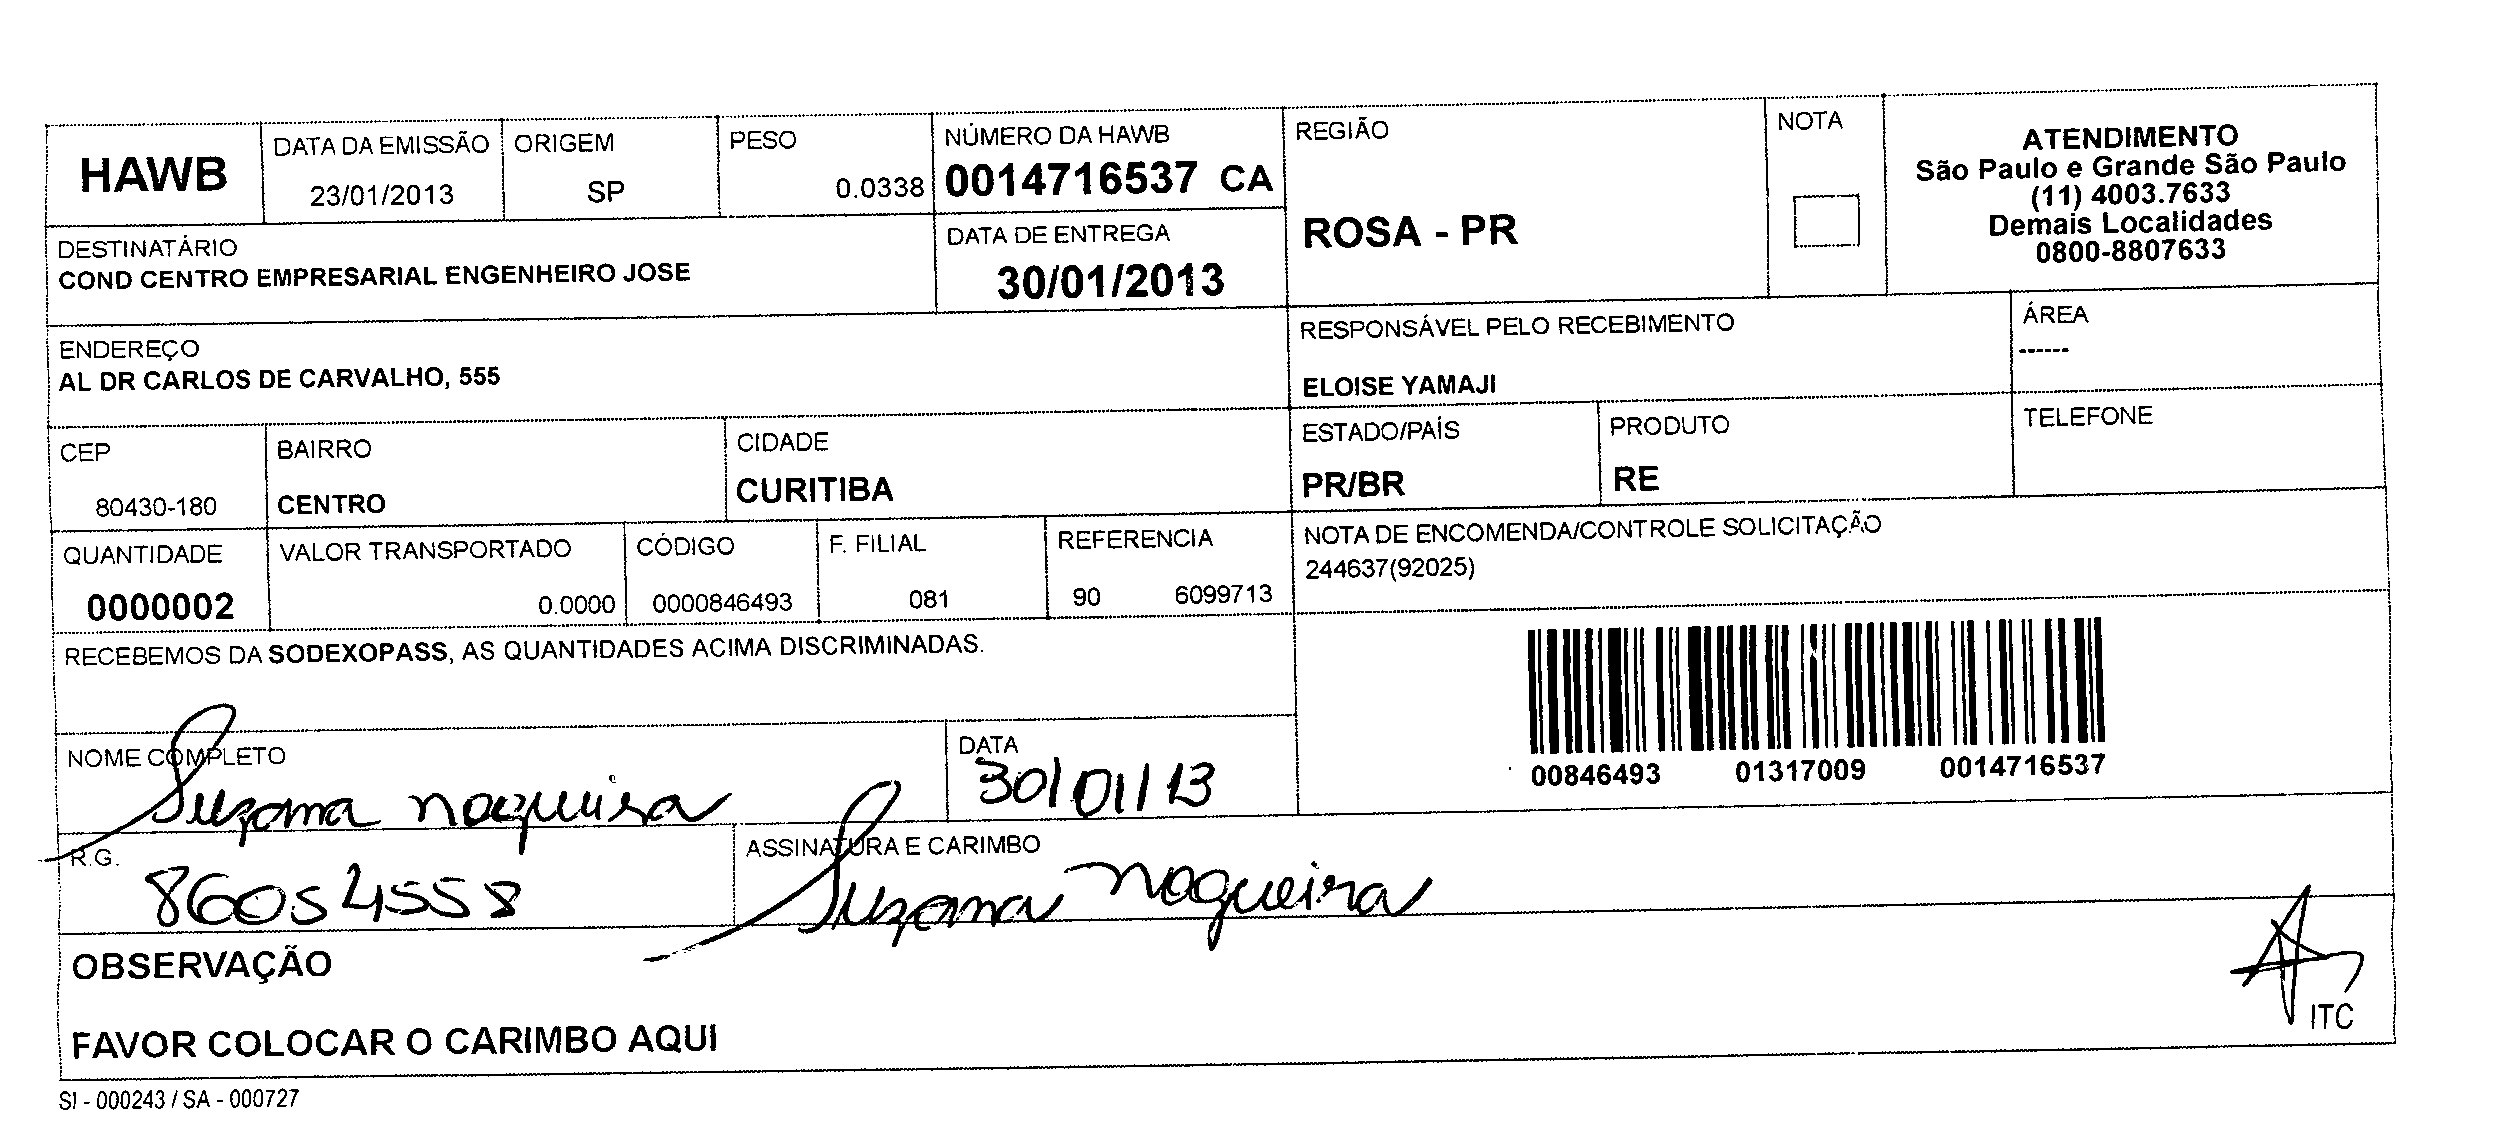 HAWB
DATA DA EMISSÃO
23/01/2013
ORIGEM
SP
PESO
0.0338
NÚMERO DA HAWB
0014716537 CA
REGIÃO
ROSA - PR
NOTA
ATENDIMENTO
São Paulo e Grande São Paulo
(11) 4003.7633
Demais Localidades
0800-8807633
DESTINATÁRIO
COND CENTRO EMPRESARIAL ENGENHEIRO JOSE
DATA DE ENTREGA
30/01/2013
ENDEREÇO
AL DR CARLOS DE CARVALHO, 555
RESPONSÁVEL PELO RECEBIMENTO
ELOISE YAMAJI
ÁREA
------
CEP
80430-180
BAIRRO
CENTRO
CIDADE
CURITIBA
ESTADO/PAÍS
PR/BR
PRODUTO
RE
TELEFONE
QUANTIDADE
0000002
VALOR TRANSPORTADO
0.0000
CÓDIGO
0000846493
F. FILIAL
081
REFERENCIA
90 6099713
NOTA DE ENCOMENDA/CONTROLE SOLICITAÇÃO
244637(92025)
RECEBEMOS DA SODEXOPASS, AS QUANTIDADES ACIMA DISCRIMINADAS.
00846493 01317009 0014716537
NOME COMPLETO
Suzana Nogueira
DATA
30/01/13
R.G.
86054558
ASSINATURA E CARIMBO
Suzana Nogueira
OBSERVAÇÃO
FAVOR COLOCAR O CARIMBO AQUI
ITC
SI - 000243 / SA - 000727